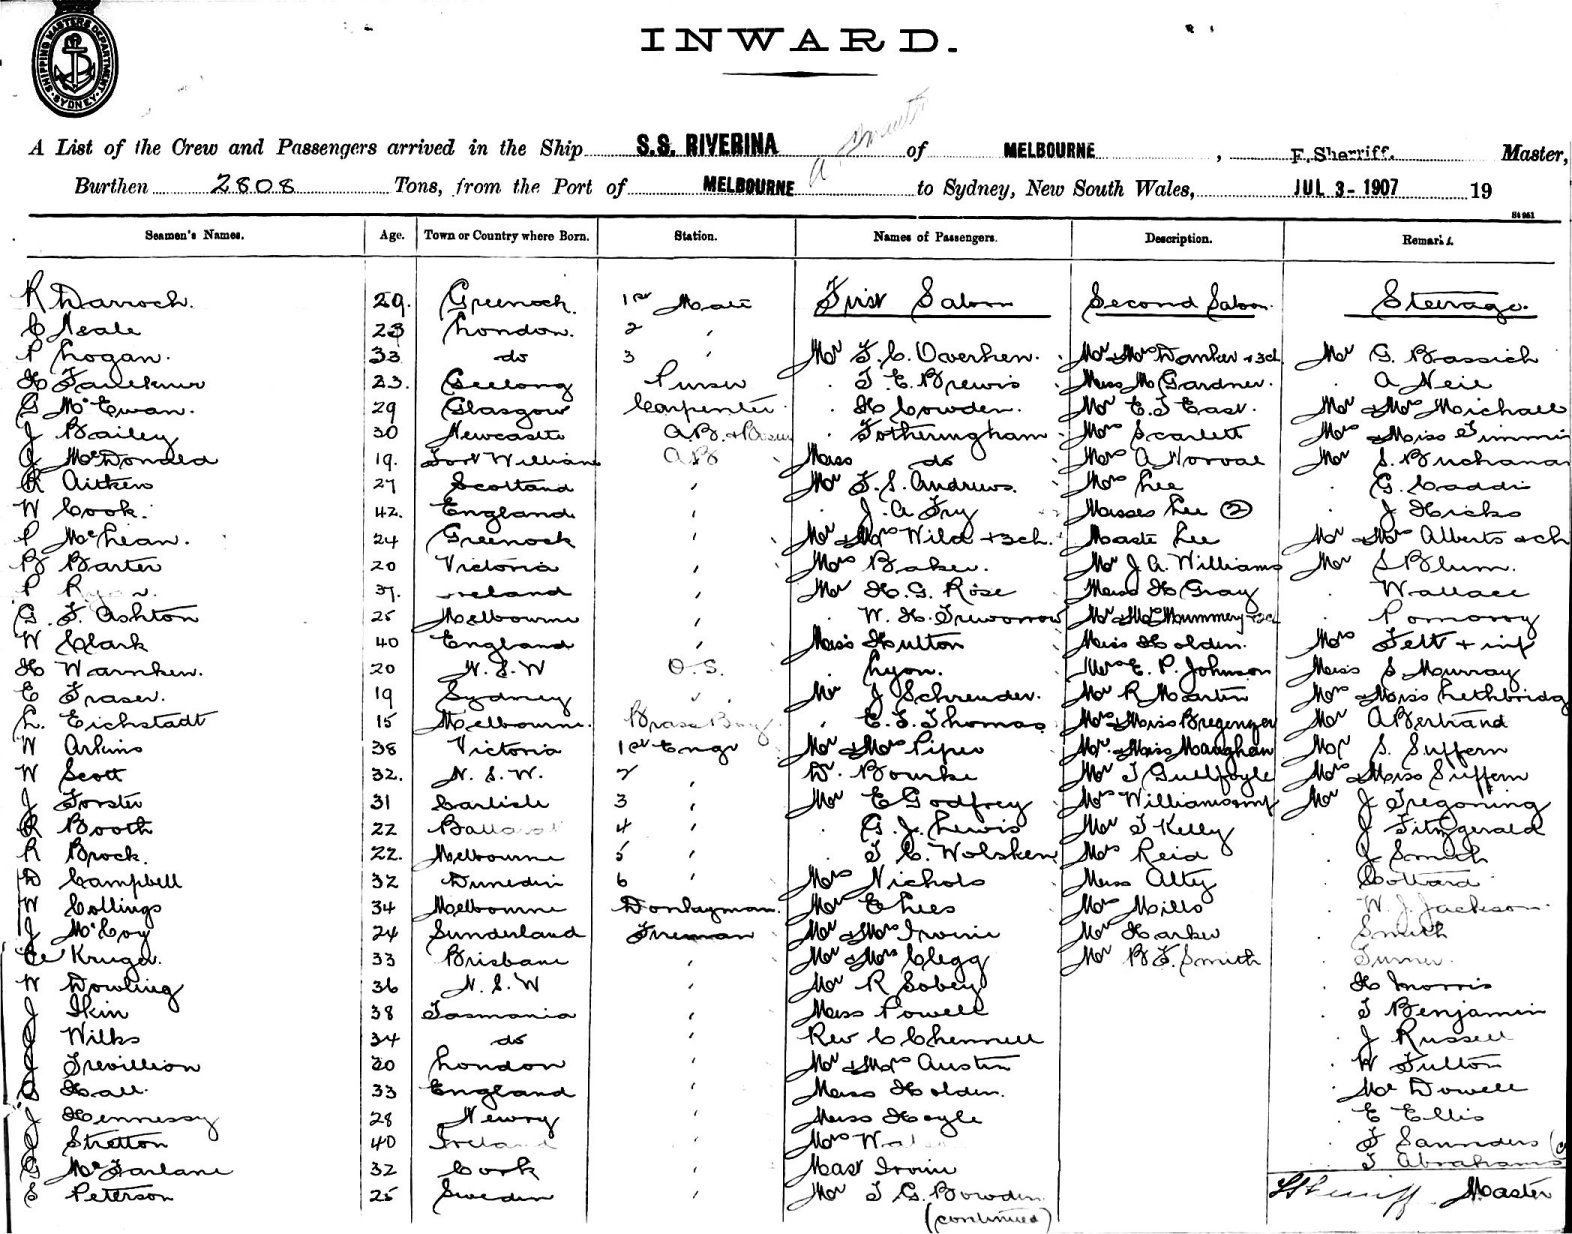 SHIPPING MASTERS DEPARTMENT SYDNEY
INWARD.
A List of the Crew and Passengers arrived in the Ship S.S. RIVERINA of MELBOURNE, F. Sherriff. Master,
Burthen 2808 Tons, from the Port of MELBOURNE to Sydney, New South Wales, JUL 3- 1907 19
St 961
Seamen's Names. Age. Town or Country where Born. Station. Names of Passengers. Description. Remarks.
R Darroch. 29. Greenock. 1st Mate First Saloon Second Saloon. Steerage.
C Neale 23 London. 2 "
P Logan. 33 do 3 " Mr F. C. Overhen. Mr & Mrs Danker + 3ch Mr G. Brassich
H Faulkner 23. Geelong Purser . T. E. Brewis Miss M Gardner. . A Neil
G McEwan. 29 Glasgow Carpenter . H Cowden. Mr E. J East. Mr & Mrs Michael
J Bailey 30 Newcastle AB. & . Fotheringham Mrs Scarlett Mrs & Miss Timmin
J McDonald 19. Fort William AB Miss do Mrs A Norval Mr S. Buchanan
R Aitken 27 Scotland " Mr F. S. Andrews. Mrs Lee . G. Caddis
W Cook. 42. England " . J. A Fry Misses Lee (2) . J Hicks
P McLean. 24 Greenock " Mr & Mrs Wild + 3ch. Master Lee Mr & Mrs Alberts & ch
B Barter 20 Victoria " Mrs Baker. Mr J. A. Williams Mr S Blum.
P 37. Ireland " Mr H. G. Rose Miss H Gray . Wallace
G. F. Ashton 25 Melbourne " . W. H. Treworrow Mr & Mrs Mummery . Pomoroy
W Clark 40 England " Miss Hulton Miss Holden. Mrs Felt + inf
H Warnken. 20 N. S. W O. S. . Lyon. Mrs E. P. Johnson Miss S Murray
E Fraser. 19 Sydney " Mr J Schreuder. Mr R Martin Mrs & Miss Lethbridg
L. Eichstadt 15 Melbourne. Brass Boy . E. F. Thomas Mrs & Miss Bregenzer Mr A Bertrand
W Arkins 38 Victoria 1st Engr Mr & Mrs Piper Mr & Miss Maughan Mr S. Suffern
W Scott 32. N. S. W. 2 " Dr. Bourke Mr T Guilfoyle Mrs & Miss Suffern
J Forster 31 Carlisle 3 " Mr E Godfrey Mrs Williams & inf Mr J Tregoning
R Booth 22 Ballarat 4 " . G. J. Lewis Mr T Kelly . J Fitzgerald
R Brock. 22. Melbourne 5 " . T. C. Wolsken Mrs Reid . J Smith
D Campbell 32 Dunedin 6 " Mrs Nichols Miss Alty . Cottard
W Collings 34 Melbourne Donkeyman. Mr E Lees Mrs Mills . W. J. Jackson.
J McCoy 24 Sunderland Fireman Mr & Mrs Irvine Mr Harker . Smith
C Kruger. 33 Brisbane " Mr & Mrs Clegg Mr B F. Smith . Turner
W Dowling 36 N. S. W " Mr R Sobey . H Morris
J Ikin 38 Tasmania " Miss Powell . T Benjamin
J Wilks 34 do " Rev C Chennell . J Russell
J Trevillion 20 London " Mr & Mrs Austin . W Fulton
Hall. 33 England " Miss Holden. . McDowell
J Hennessy 28 Newry " Miss Hoyle . E Ellis
J Stretton 40 Ireland " Mrs . F Saunders
G McFarlane 32 Cork " Mast Irvine . T Abrahams
S Peterson 25 Sweden " Mr T G. Bowden. F Sherriff. Master
(continued)